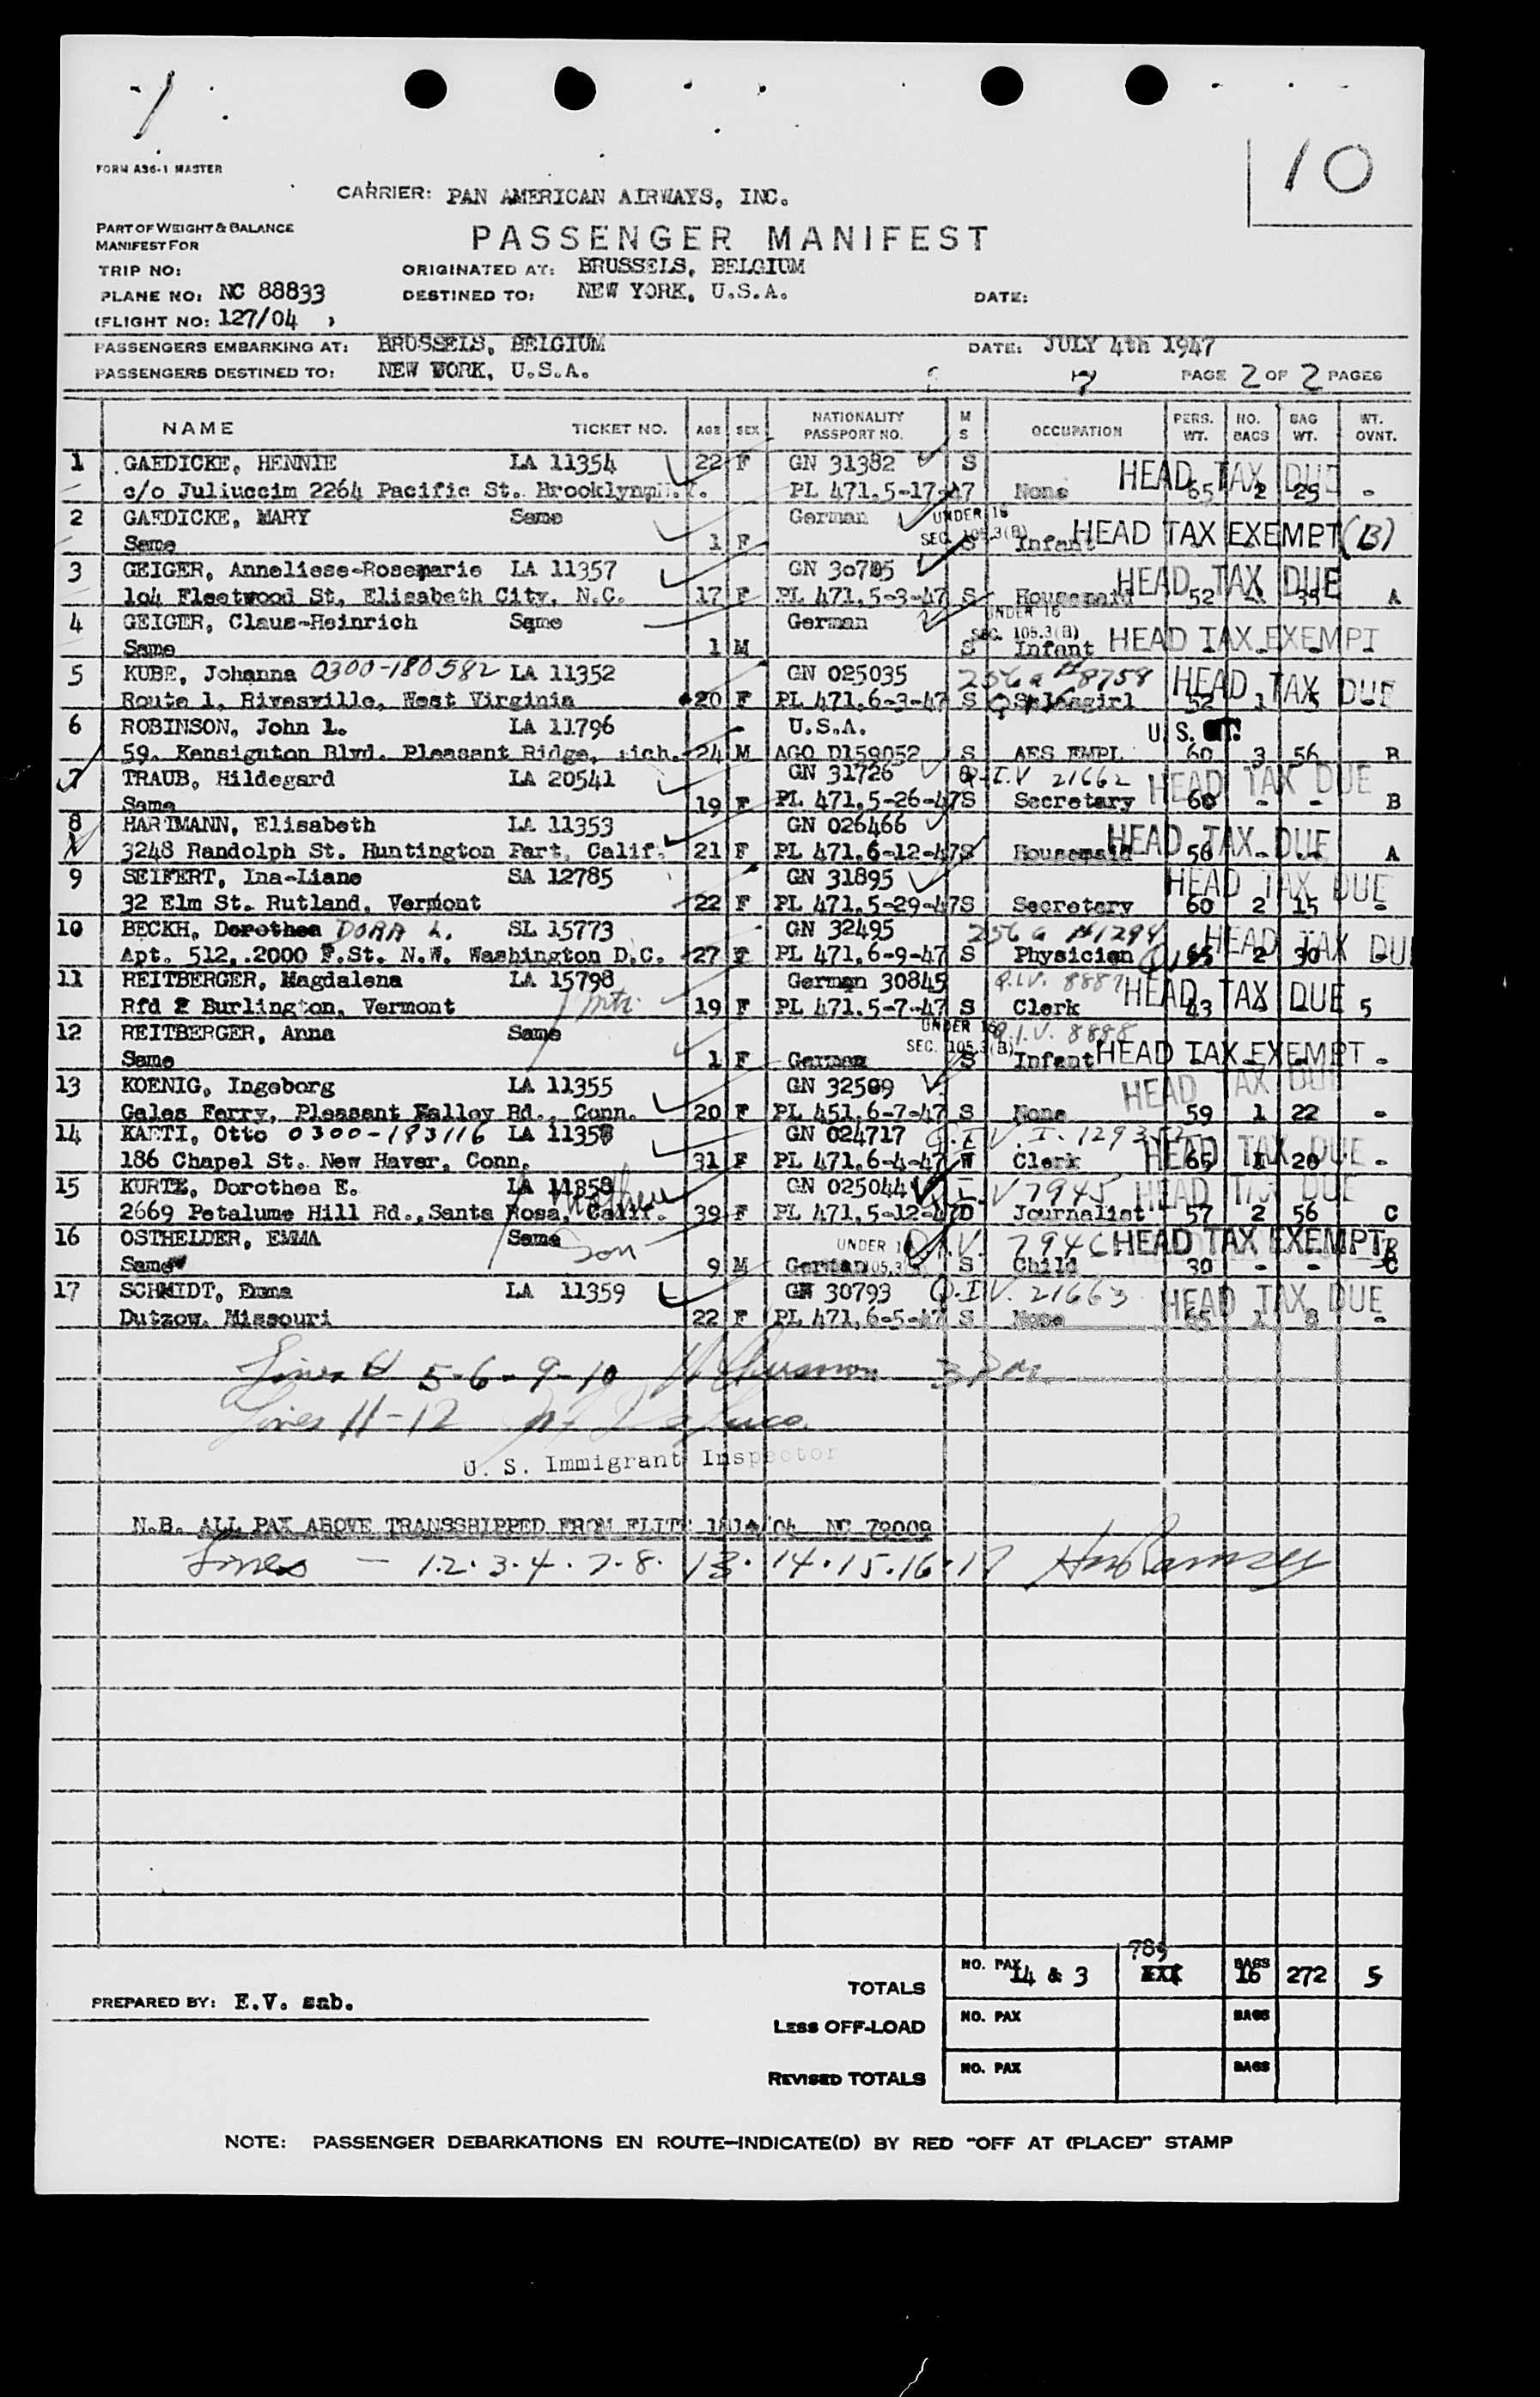 10
FORM A36-1 MASTER
CARRIER: PAN AMERICAN AIRWAYS, INC.
PART OF WEIGHT & BALANCE
MANIFEST FOR
PASSENGER MANIFEST
TRIP NO:
ORIGINATED AT: BRUSSELS, BELGIUM
PLANE NO: NC 88833
DESTINED TO: NEW YORK, U.S.A.
DATE:
(FLIGHT NO: 127/04 )
PASSENGERS EMBARKING AT: BRUSSELS, BELGIUM DATE: JULY 4th 1947
PASSENGERS DESTINED TO: NEW YORK, U.S.A. PAGE 2 OF 2 PAGES
NAME TICKET NO. AGE SEX NATIONALITY PASSPORT NO. M S OCCUPATION PERS. WT. NO. BAGS BAG WT. WT. OVNT.
1 GAEDICKE, HENNIE LA 11354 22 F GN 31382 S HEAD TAX DUE
c/o Juliuccim 2264 Pacific St. Brooklyn PL 471.5-17-47 None 65 2 25 -
2 GAEDICKE, MARY Same German UNDER 16
Same 1 F SEC. 105.3(B) S Infant HEAD TAX EXEMPT (B)
3 GEIGER, Anneliese-Rosemarie LA 11357 GN 30785 HEAD TAX DUE
104 Fleetwood St, Elisabeth City, N.C. 17 F PL 471.5-3-47 S Housemaid 52 A
4 GEIGER, Claus-Heinrich Same German UNDER 16
Same 1 M SEC. 105.3(B) S Infant HEAD TAX EXEMPT
5 KUBE, Johanna 0300-180582 LA 11352 GN 025035 256a #8758 HEAD TAX DUE
Route 1, Rivesville, West Virginia 20 F PL 471.6-3-47 S Salesgirl 52 1 5
6 ROBINSON, John L. LA 11796 U.S.A. U.S.
59. Kensignton Blvd. Pleasant Ridge, Mich. 24 M AGO D159052 S AES EMPL 60 3 56 B
7 TRAUB, Hildegard LA 20541 GN 31726 Q.I.V 21662 HEAD TAX DUE
Same 19 F PL 471.5-26-47 S Secretary 60 - - B
8 HARTMANN, Elisabeth LA 11353 GN 026466 HEAD TAX DUE
3248 Randolph St. Huntington Part, Calif. 21 F PL 471.6-12-47 S Housemaid 56 - - A
9 SEIFERT, Ina-Liane SA 12785 GN 31895 HEAD TAX DUE
32 Elm St. Rutland, Vermont 22 F PL 471.5-29-47 S Secretary 60 2 15 -
10 BECKH, Dorothea DORA L. SL 15773 GN 32495 256a #1294 HEAD TAX DUE
Apt. 512,.2000 F.St. N.W. Washington D.C. 27 F PL 471.6-9-47 S Physician 65 2 30
11 REITBERGER, Magdalena LA 15798 German 30845 Q.I.V. 8887 HEAD TAX DUE
Rfd 2 Burlington, Vermont mtr. 19 F PL 471.5-7-47 S Clerk 43 5
12 REITBERGER, Anna Same UNDER 16 Q.I.V. 8888
Same 1 F German SEC. 105.3(B) S Infant HEAD TAX EXEMPT -
13 KOENIG, Ingeborg LA 11355 GN 32509 HEAD TAX DUE
Gales Ferry, Pleasant Valley Rd., Conn. 20 F PL 451.6-7-47 S None 59 1 22 -
14 KAETI, Otto 0300-183116 LA 11358 GN 024717 HEAD TAX DUE
186 Chapel St. New Haver, Conn. 31 F PL 471.6-4-47 W Clerk 65 1 20 -
15 KURTZ, Dorothea E. LA 11858 GN 025044 I.V 7945 HEAD TAX DUE
2669 Petalume Hill Rd.,Santa Rosa, Calif. Mother 39 F PL 471.5-12-47 D Journalist 57 2 56 C
16 OSTHELDER, EMMA Same UNDER 16 Q.I.V. 7946 HEAD TAX EXEMPT
Same Son 9 M German 105.3 S Child 30 - - C
17 SCHMIDT, Emma LA 11359 GN 30793 Q.I.V. 21663 HEAD TAX DUE
Dutzow, Missouri 22 F PL 471.6-5-47 S None 65 1 8 -
Lines 5-6-9-10
Lines 11-12
U. S. Immigrant Inspector
N.B. ALL PAX ABOVE TRANSSHIPPED FROM FLITE /04 NC 79009
Lines - 1.2.3.4.7.8. 13. 14.15.16.17
TOTALS NO. PAX 14 & 3 789 BAGS 16 272 5
PREPARED BY: E.V. sab.
LESS OFF-LOAD NO. PAX BAGS
REVISED TOTALS NO. PAX BAGS
NOTE: PASSENGER DEBARKATIONS EN ROUTE-INDICATE(D) BY RED "OFF AT (PLACE)" STAMP